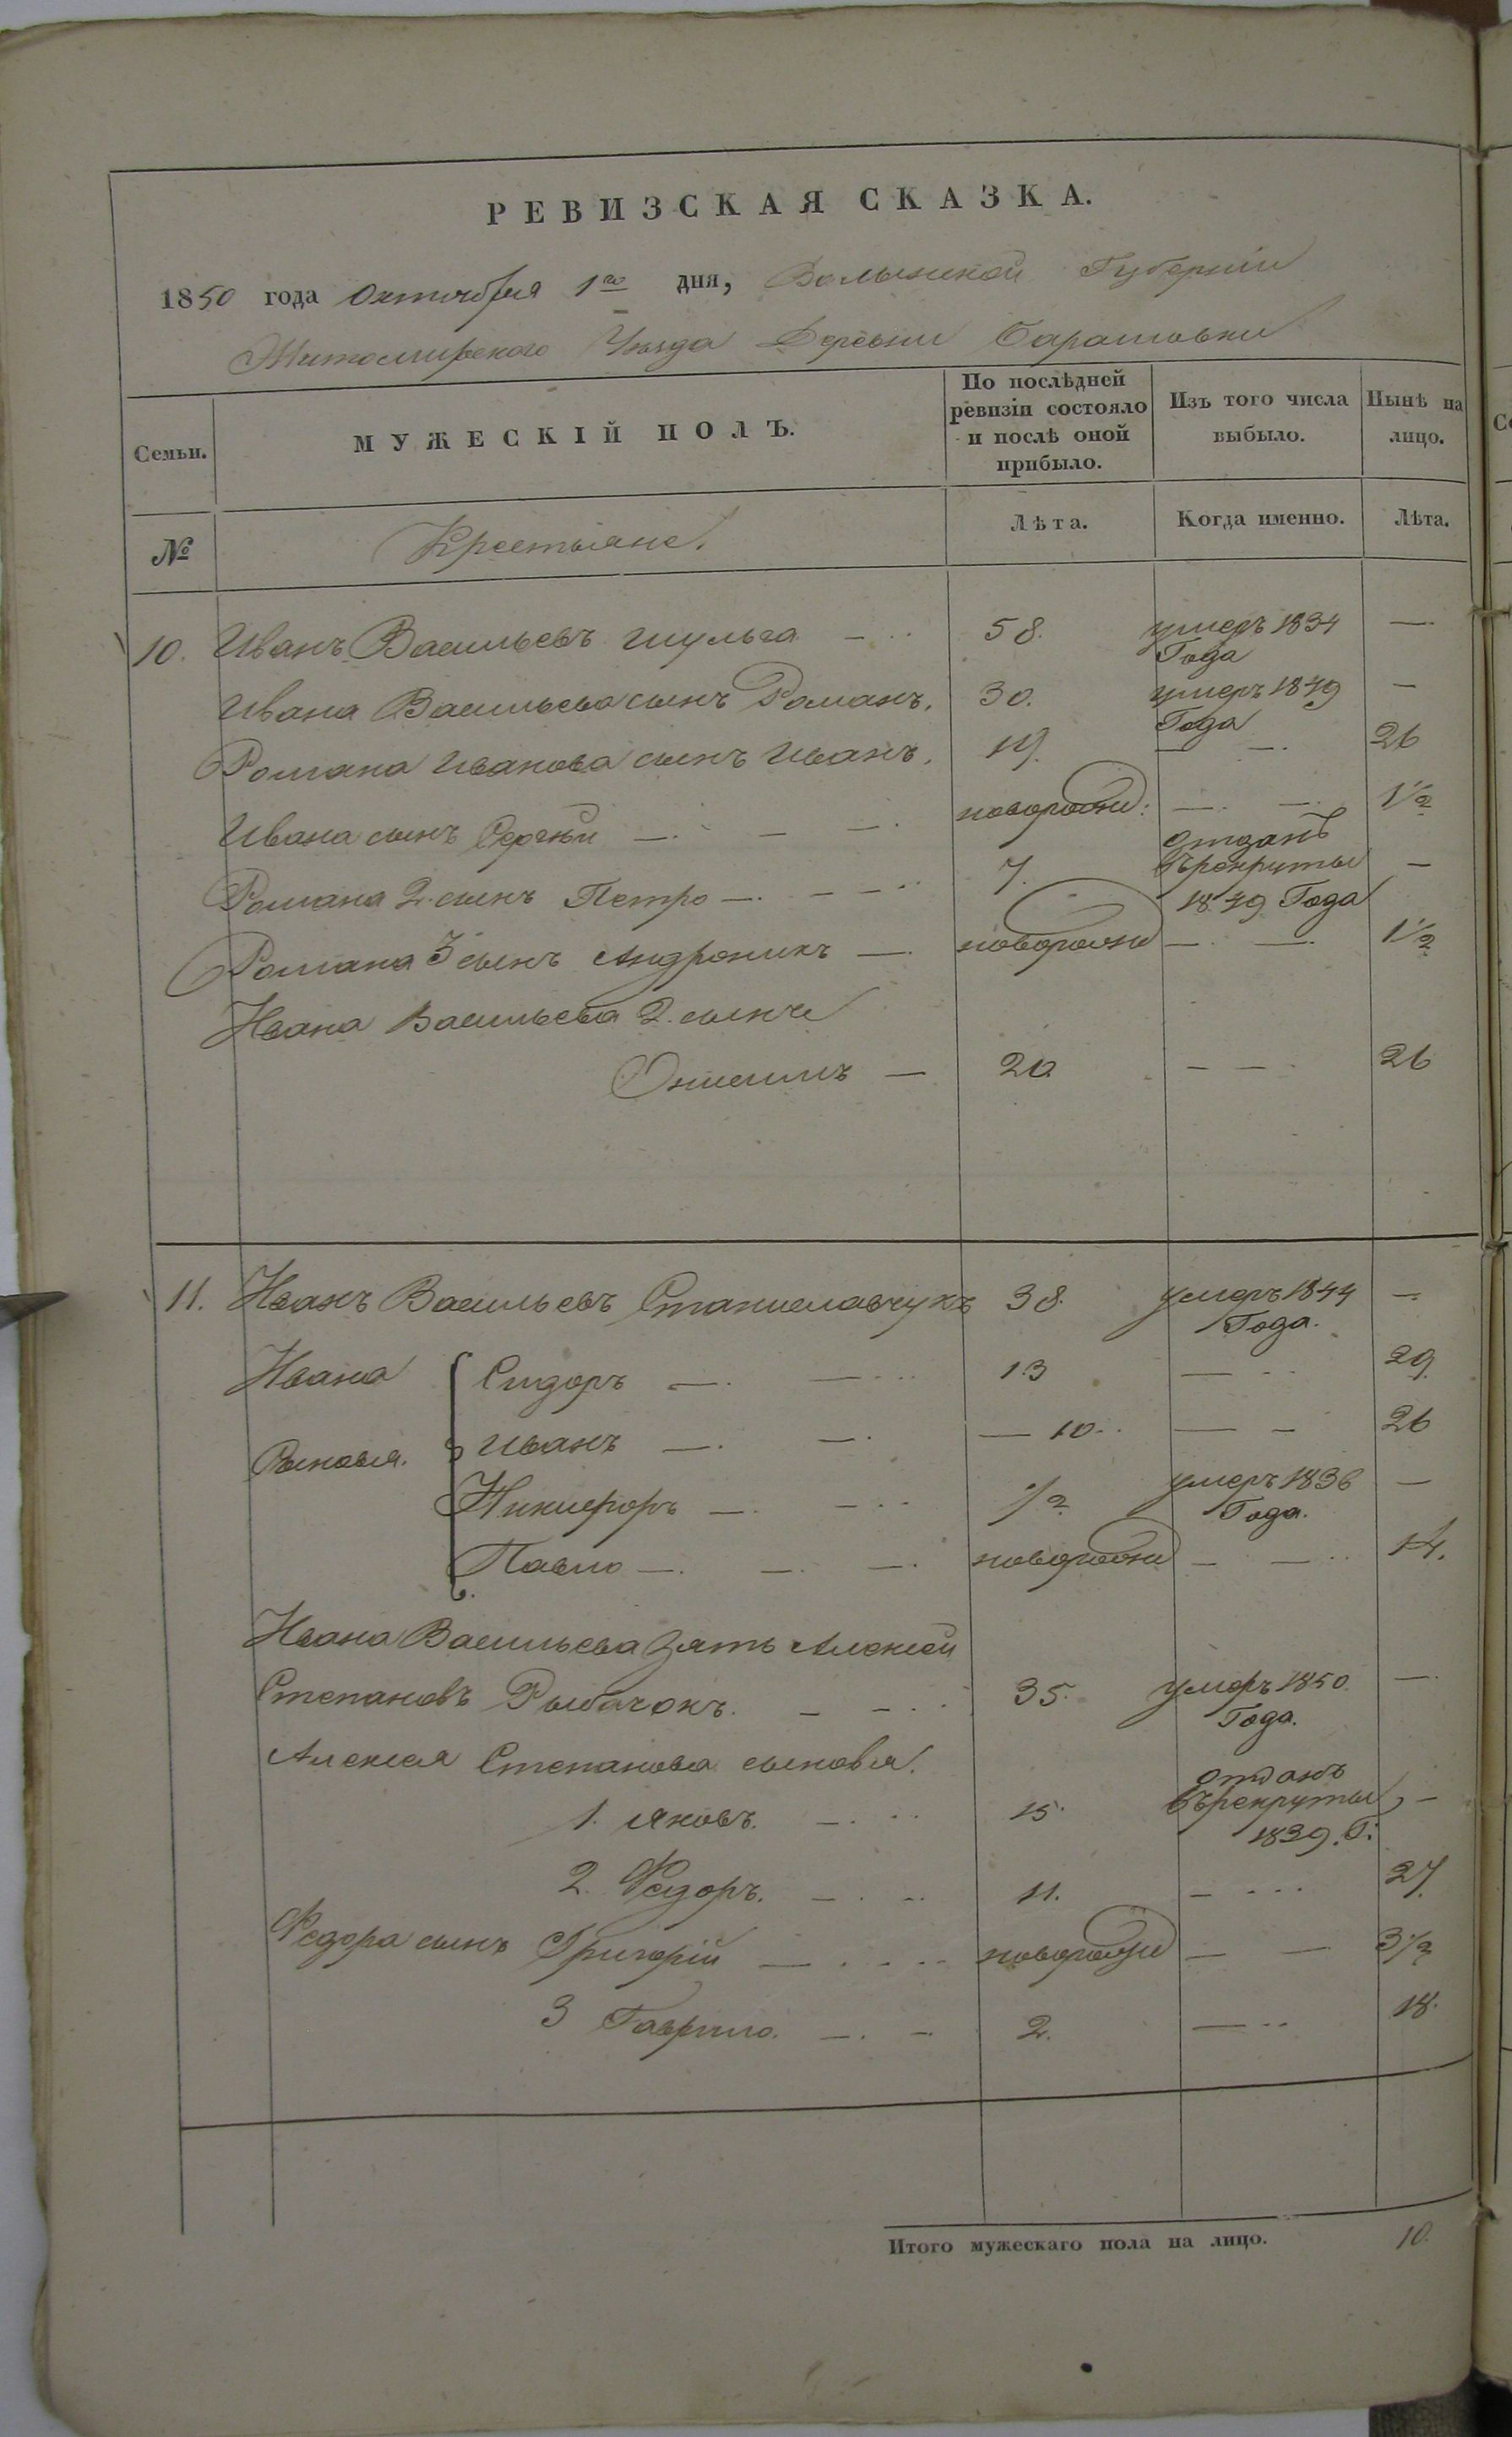 РЕВИЗСКАЯ СКАЗКА.
1850 года Октября 1го дня, Волынской Губернiи
Житомирского Уѣзда Деревни Барашовки
Семьи.
МУЖЕСКIЙ ПОЛЪ.
По послѣдней
ревизiи состояло
и послѣ оной
прибыло.
Изъ того числа
выбыло.
Нынѣ на
лицо.
№
Крестьяне.
Лѣта.
Когда именно.
Лѣта.
10. Иванъ Васильевъ Шульга — 58. умеръ 1834 —
Года
Ивана Васильева сынъ Романъ. 30. умеръ 1849 —
Года
Романа Иванова сынъ Иванъ. — — 26
Ивана сынъ Сергѣй — — — новорожде: — — 1½
отданъ
Романа 2. сынъ Петро — — — 7. въ рекруты —
1849 Года
Романа 3 сынъ Андроникъ — новорожде — — 1½
Ивана Васильева 2. сынъ
Онисимъ — 20 — — 26
11. Иванъ Васильевъ Станиславчукъ 38. умеръ 1844 —
Года.
Ивана Сидоръ — — 13 — — 29.
Сыновья. Иванъ — — — 10. — — 26
Никифоръ — — ½ умеръ 1836 —
Года.
Павло — — — новорожде — — 14.
Ивана Васильева Зять Алексей
Степановъ Рыбачокъ. — — 35. умеръ 1850. —
Года.
Алексея Степанова сыновья.
отданъ
1. Яковъ. — 15. въ рекруты, —
1839. Г.
2. Федоръ. — 11. — 27.
Федора сынъ Григорiй — новорожде — — 3½
3 Гаврило. — — 2. — 18.
Итого мужескаго пола на лицо. 10.